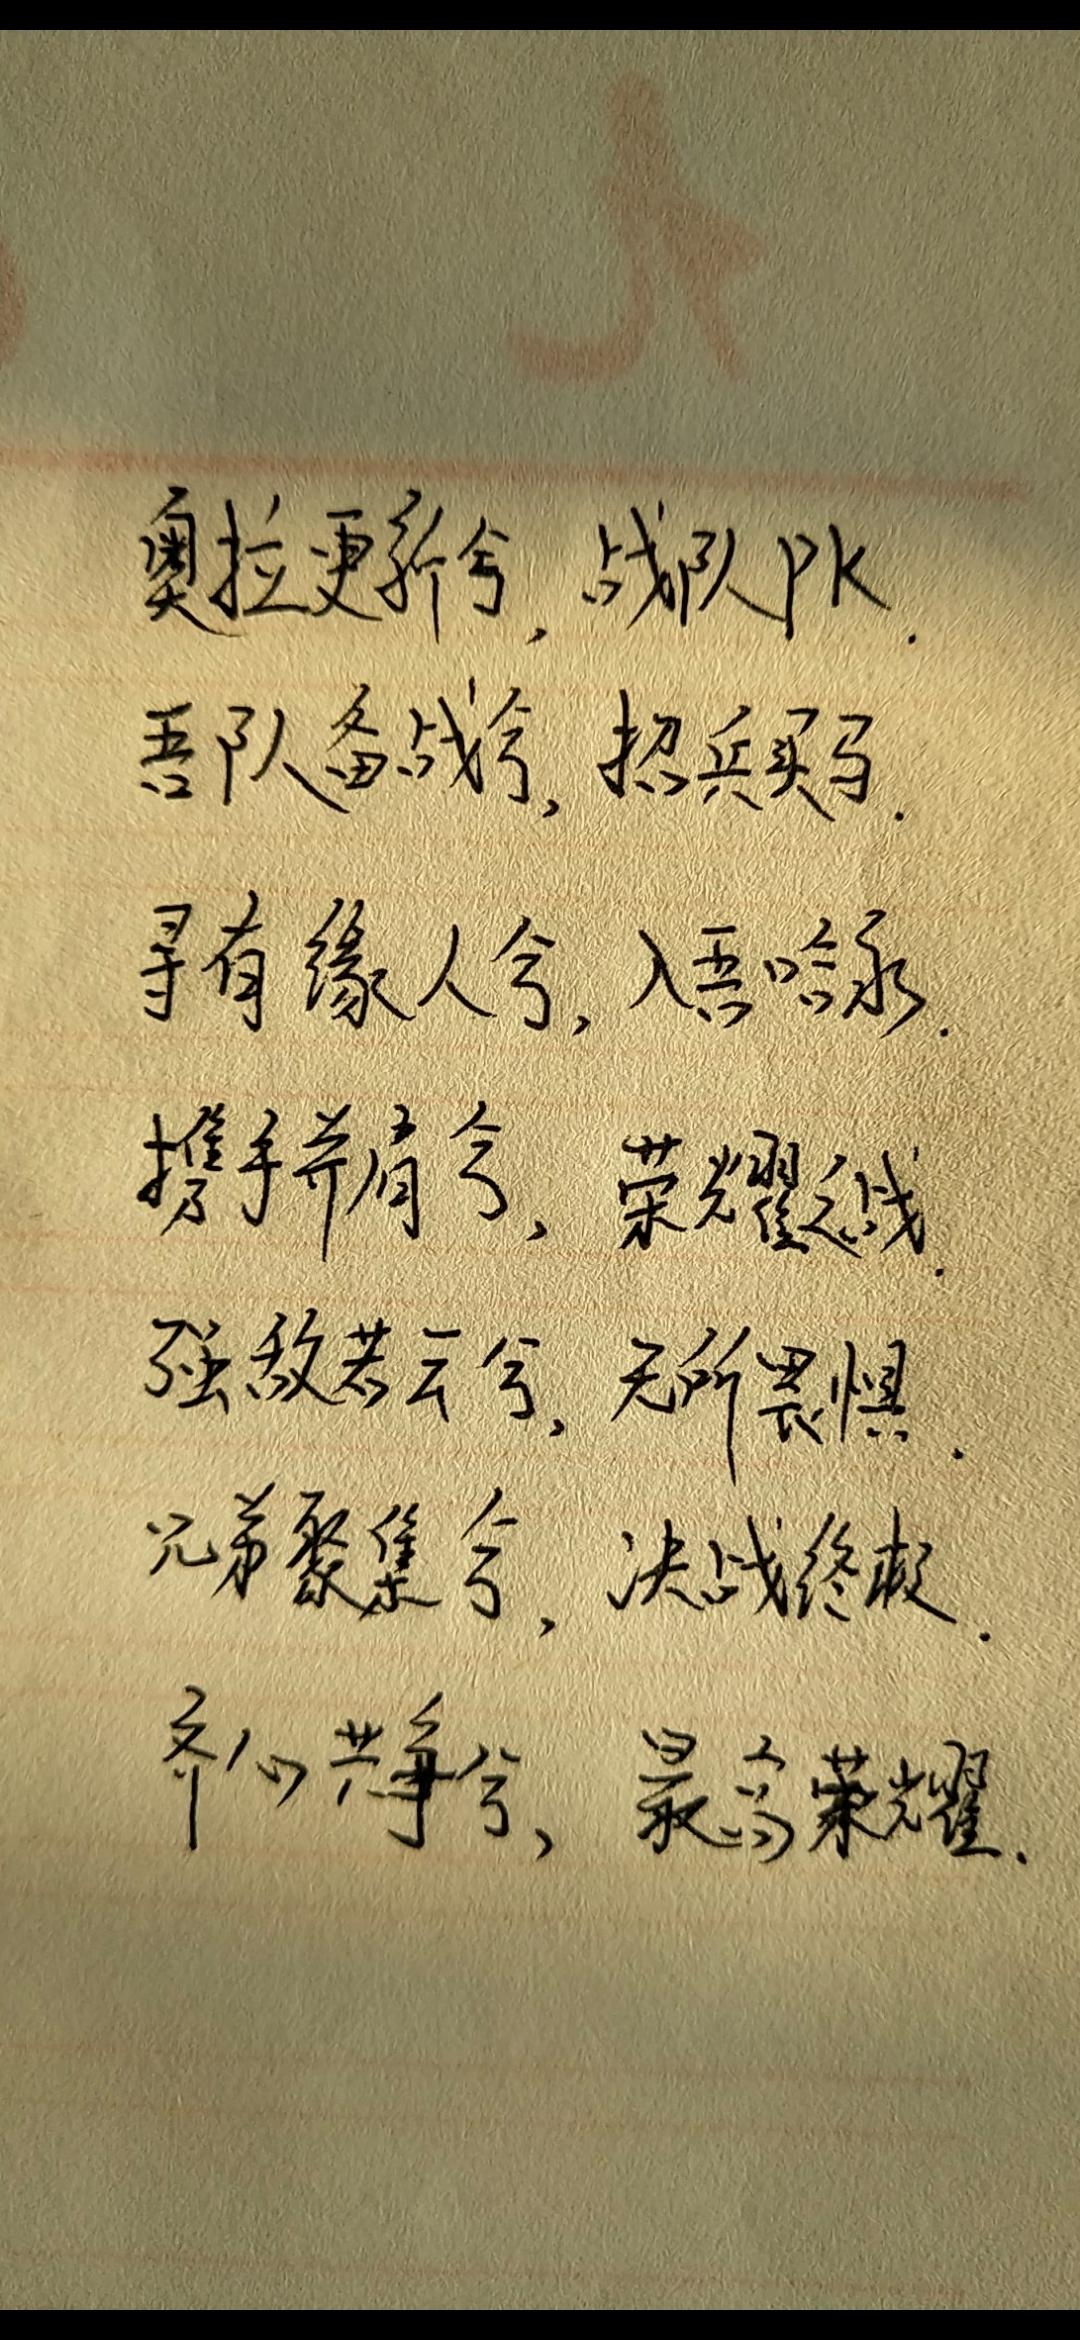 奥拉更新兮,战队PK.
吾队备战兮,招兵买马.
寻有缘人兮,入吾哈永.
携手并肩兮,荣耀之战.
强敌若云兮,无所畏惧.
兄弟聚集兮,决战终极.
齐心共争兮,最高荣耀.